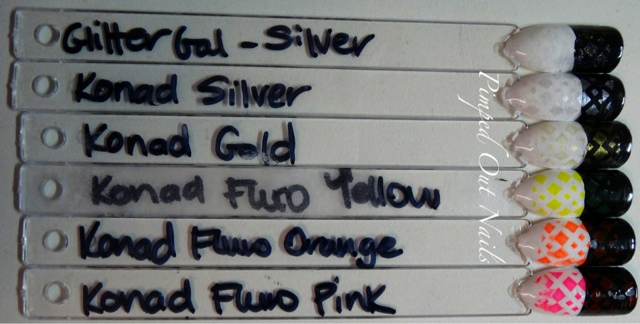 Glitter Gal - Silver
Konad Silver
Konad Gold
Konad Fluro Yellow
Konad Fluro Orange
Konad Fluro Pink
Pimped Out Nails